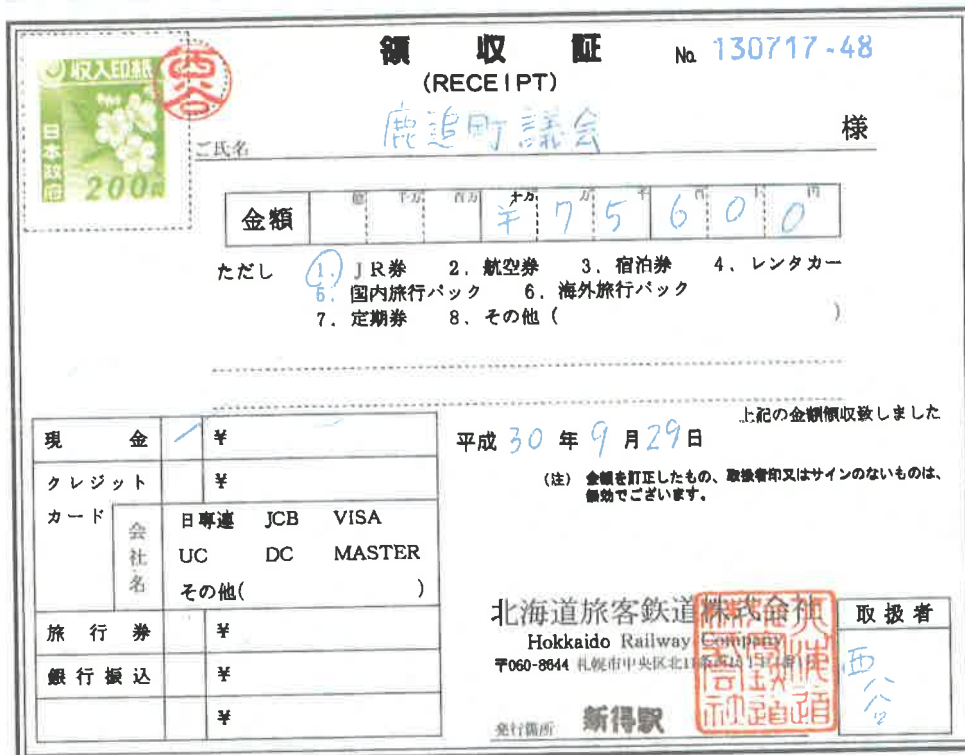 領収証 No. 130717-48
(RECEIPT)
収入印紙
日本政府
200円
西谷
ご氏名 鹿追町議会 様
金額 億 千万 百万 十万 万 千 百 十 円
¥75600
ただし 1. JR券 2. 航空券 3. 宿泊券 4. レンタカー
5. 国内旅行パック 6. 海外旅行パック
7. 定期券 8. その他 ( )
上記の金額領収致しました
平成 30 年 9 月 29 日
(注) 金額を訂正したもの、取扱者印又はサインのないものは、
無効でございます。
現金 ¥
クレジット ¥
カード
会社名
日専連 JCB VISA
UC DC MASTER
その他( )
旅行券 ¥
銀行振込 ¥
¥
北海道旅客鉄道株式会社
Hokkaido Railway Company
〒060-8644 札幌市中央区北11条西15丁目1番1号
発行箇所 新得駅
取扱者
西谷